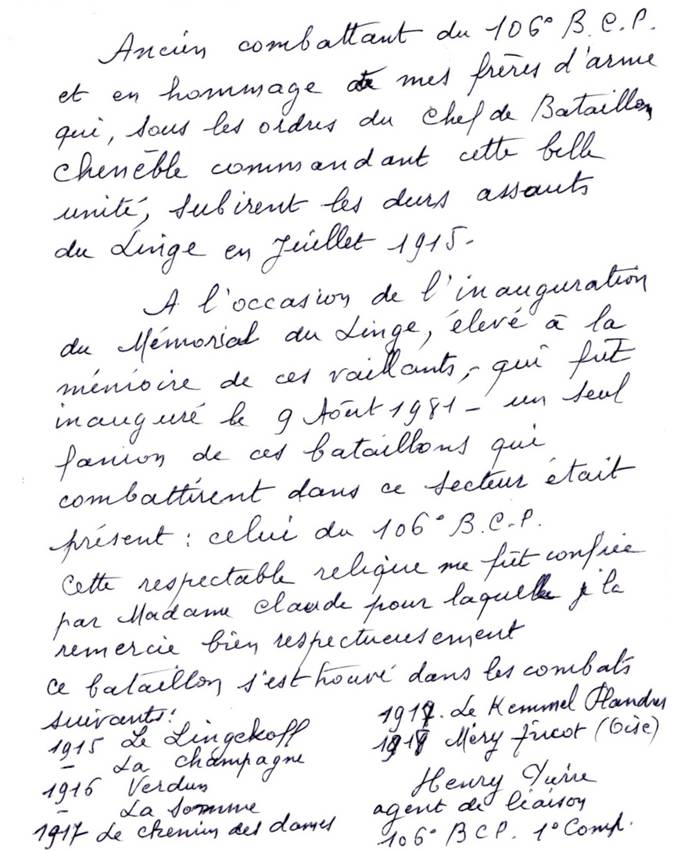 Ancien combattant du 106° B.C.P.
et en hommage de mes frères d'arme
qui, sous les ordres du Chef de Bataillon
Chenèble commandant cette belle
unité, subirent les durs assauts
du Linge en Juillet 1915-
A l'occasion de l'inauguration
du Mémorial du Linge, élevé à la
mémoire de ces vaillants, qui fut
inauguré le 9 Aôut 1981 - un seul
fanion de ces bataillons qui
combattirent dans ce secteur était
présent : celui du 106° B.C.P.
Cette respectable relique me fût confiée
par Madame Claude pour laquelle je la
remercie bien respectueusement
Ce bataillon s'est trouvé dans les combats
suivants:
1915 Le Lingekoff
- La Champagne
1916 Verdun
- La Somme
1917 Le chemin des dames
191. Le Kemmel Flandres
1918 Méry Tricot (Oise)
Henry
agent de liaison
106° BCP. 1° Comp.